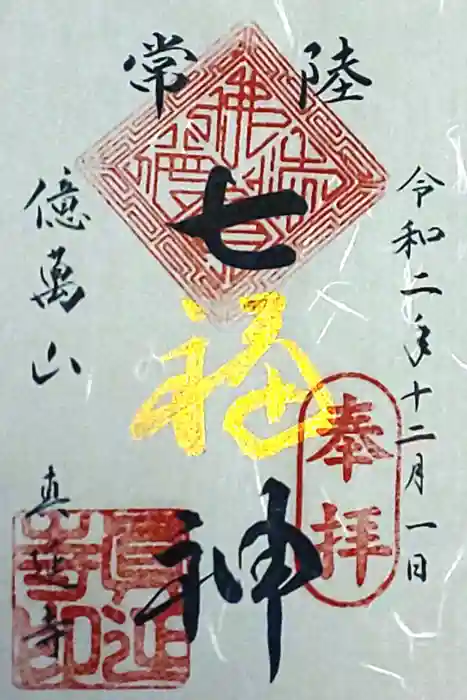 常陸
七福神
令和二年十二月一日
奉拝
億萬山
真延寺